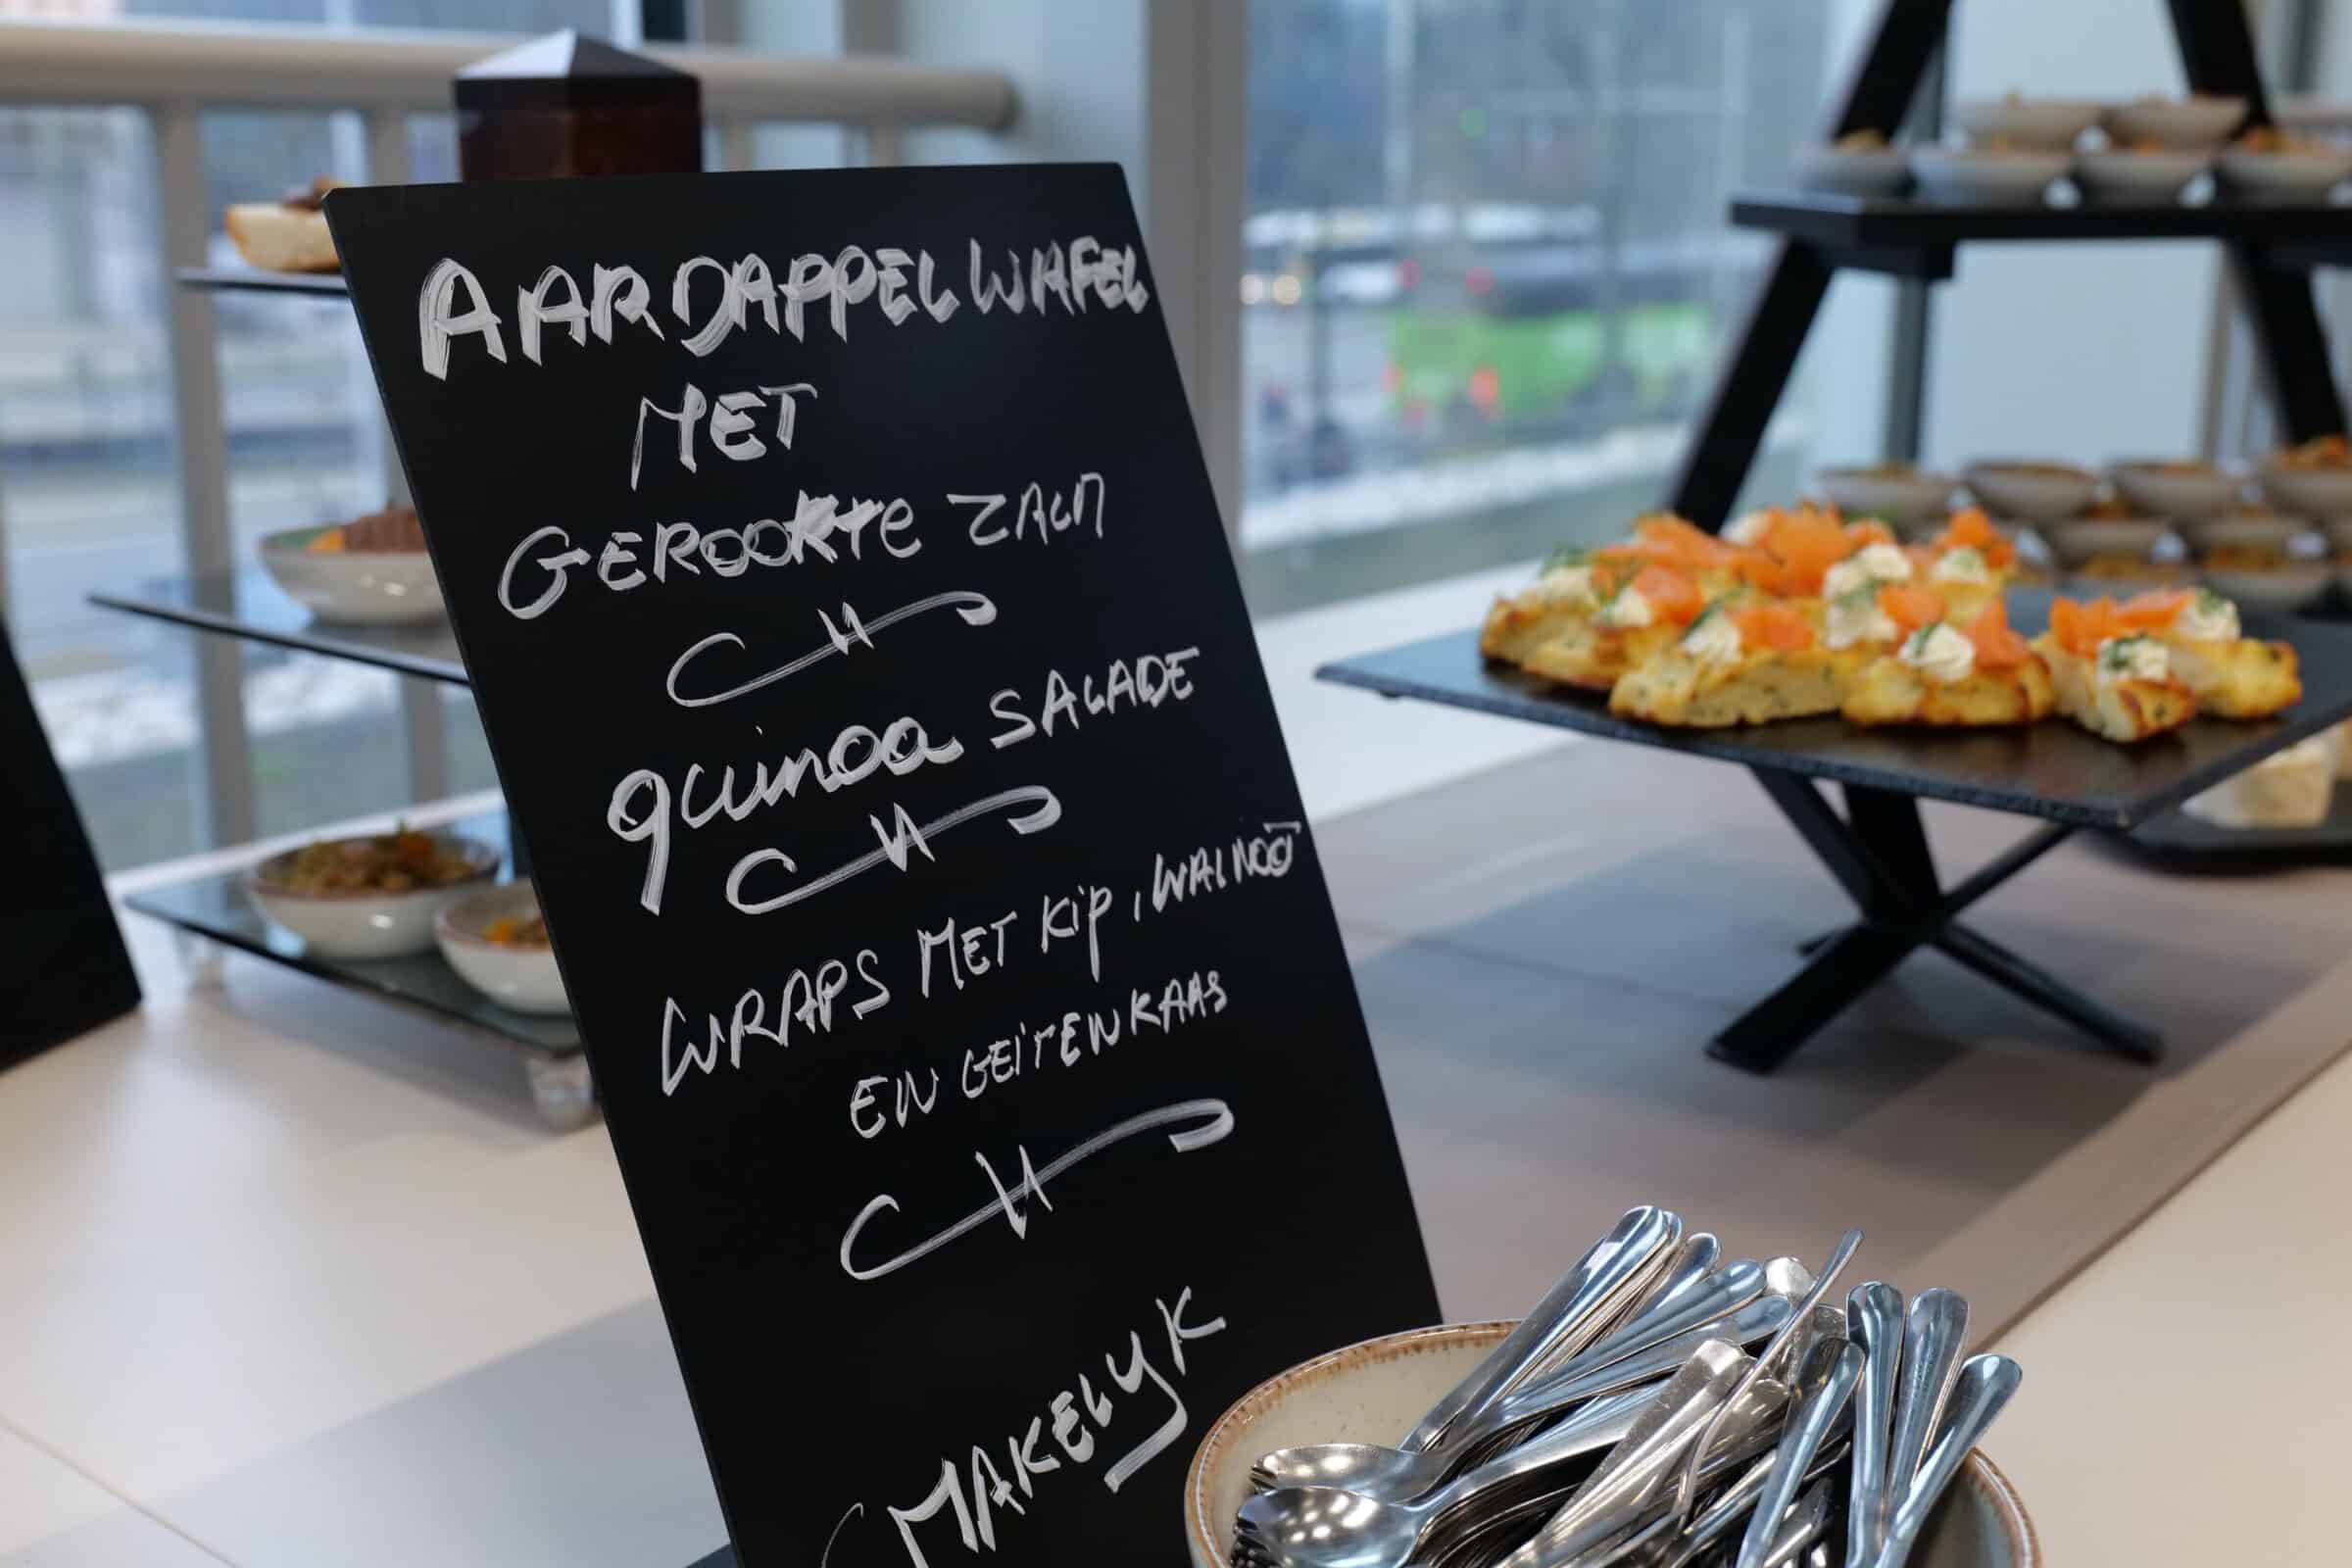 AARDAPPELWAFEL
MET
GEROOKTE ZALM
quinoa SALADE
WRAPS MET KIP, WALNOOT
EN GEITENKAAS
MAKELYK